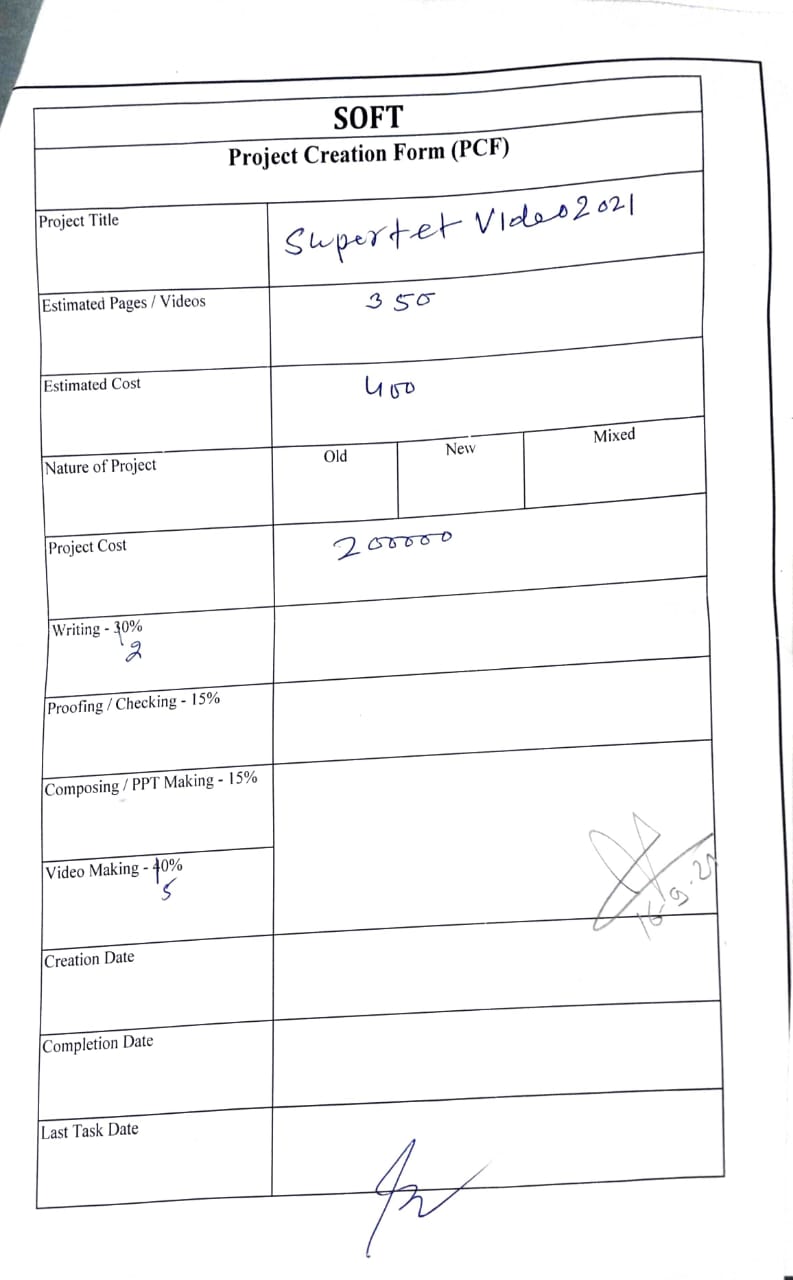 SOFT
Project Creation Form (PCF)
Project Title
Supertet Video 2021
Estimated Pages / Videos
350
Estimated Cost
400
Nature of Project
Old
New
Mixed
Project Cost
200000
Writing - 30%
2
Proofing / Checking - 15%
Composing / PPT Making - 15%
Video Making - 40%
5
16-9-21
Creation Date
Completion Date
Last Task Date